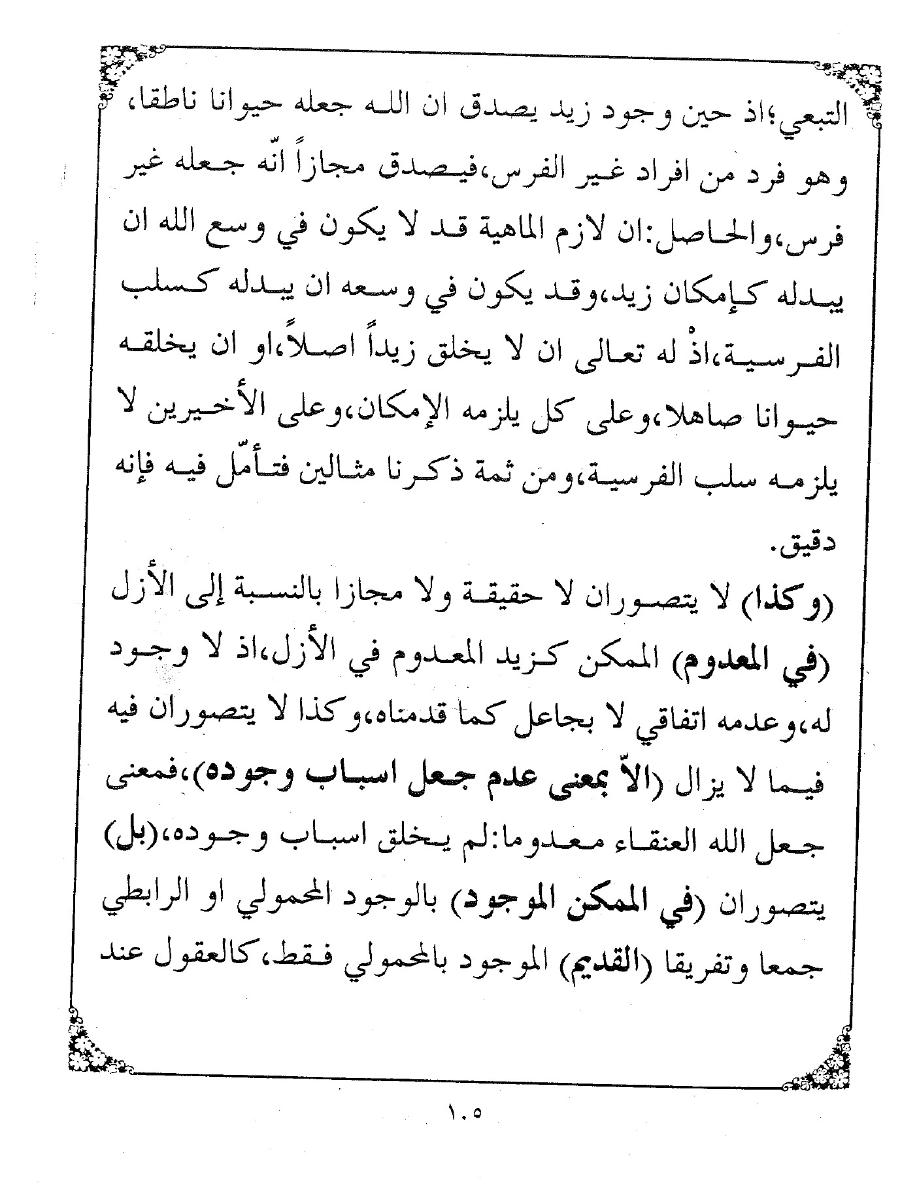 التبعي؛اذ حين وجود زيد يصدق ان اللـه جعله حيوانا ناطقا،
وهو فرد من افراد غـير الفرس،فيـصدق مجازاً انّه جـعله غير
فرس،والحـاصل:ان لازم الماهية قـد لا يكون في وسع الله ان
يبـدله كـإمكان زيد،وقـد يكون في وسـعه ان يبـدله كـسلب
الفـرسـيـة،اذْ له تعـالى ان لا يخلق زيداً اصـلاً،او ان يخلقـه
حيـوانا صاهلا،وعلى كل يلزمه الإمكان،وعلى الأخـيرين لا
يلزمـه سلب الفرسيـة،ومن ثمة ذكـرنا مثـالين فتـأمّل فيـه فإنه
دقيق.
(وكذا) لا يتصـوران لا حقيقـة ولا مجازا بالنسبة إلى الأزل
(في المعدوم) الممكن كـزيد المعـدوم في الأزل،اذ لا وجـود
له،وعدمه اتفاقي لا بجاعل كما قدمناه،وكذا لا يتصوران فيه
فيـما لا يزال (الاّ بمعنى عدم جـعل اسبـاب وجوده)،فمعنى
جـعل الله العنقـاء معـدوما:لم يـخلق اسبـاب وجـوده،(بل)
يتصوران (في الممكن الموجود) بالوجود المحمولي او الرابطي
جمعا وتفريقا (القديم) الموجود بالمحمولي فـقط،كالعقول عند
١٠٥